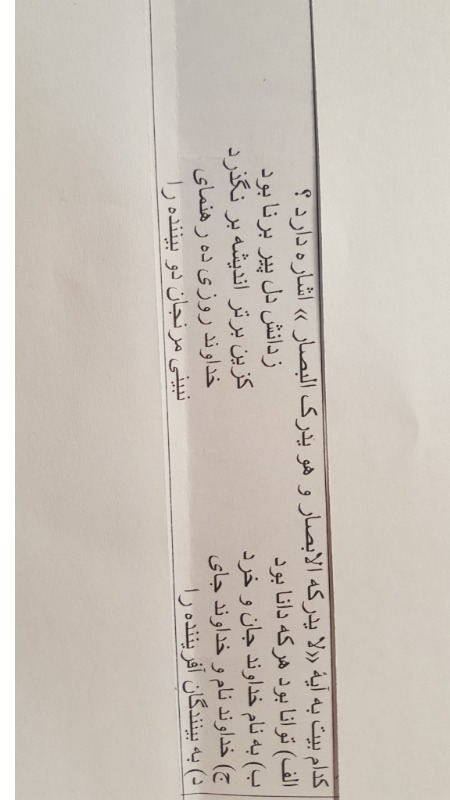 کدام بیت به آیهٔ «لا یدرکه الابصار و هو یدرک البصار» اشاره دارد؟
الف) توانا بود هرکه دانا بود زدانش دل پیر برنا بود
ب) به نام خداوند جان و خرد کزین برتر اندیشه بر نگذرد
ج) خداوند نام و خداوند جای خداوند روزی ده رهنمای
د) به بینندگان آفریننده را نبینی مرنجان دو بیننده را